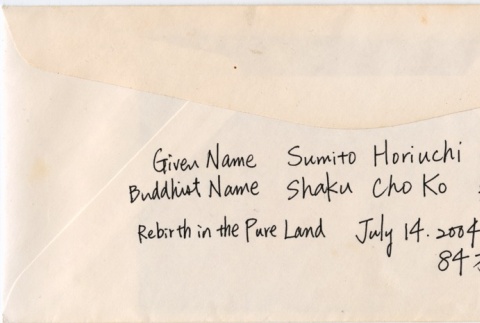 Given Name Sumito Horiuchi
Buddhist Name Shaku Cho Ko
Rebirth in the Pure Land July 14. 2004
84